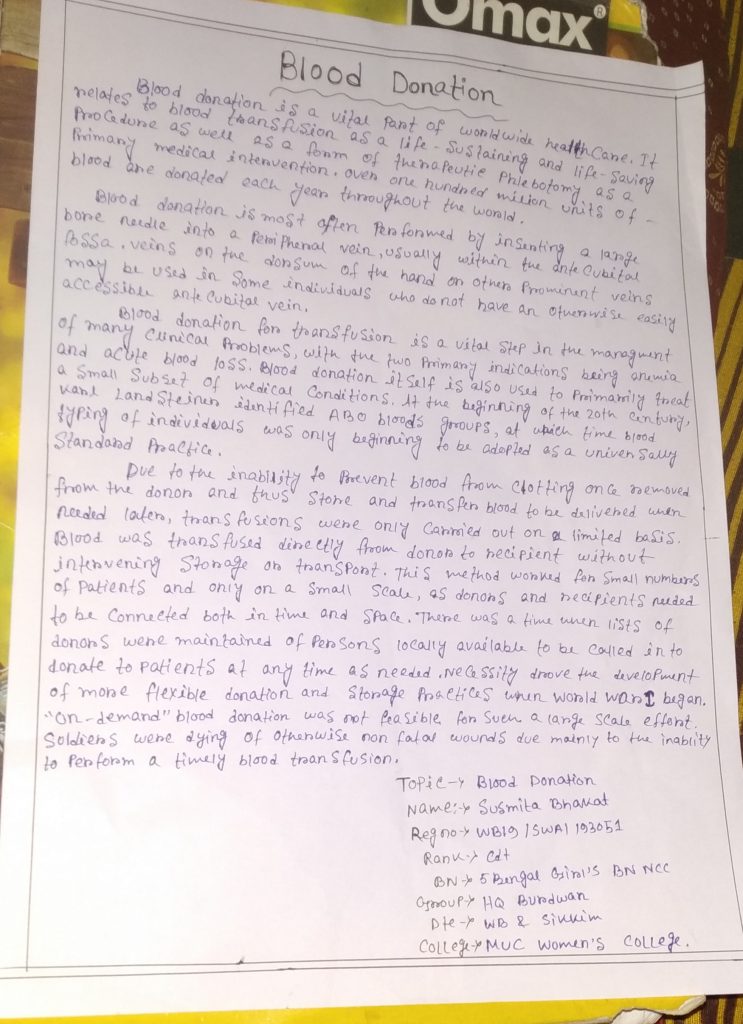 Omax®
Blood Donation
Blood donation is a vital part of worldwide healthCare. It
relates to blood transfusion as a life-sustaining and life-saving
Procedure as well as a form of therapeutic Phlebotomy as a
Primary medical intervention. over one hundred million units of -
blood are donated each year throughout the world.
Blood donation is most often Performed by inserting a large
bore needle into a Peripheral vein, usually within the ante Cubital
fossa. veins on the dorsum of the hand or other Prominent veins
may be used in Some individuals who do not have an otherwise easily
accessible ante Cubital vein.
Blood donation for transfusion is a vital step in the managment
of many Clinical Problems, with the two Primary indications being anemia
and acute blood loss. Blood donation itself is also used to Primarily treat
a Small Subset of medical Conditions. At the beginning of the 20th Century,
Karl LandSteiner identified ABO bloods groups, at which time blood
typing of individuals was only beginning to be adopted as a universally
Standard Practice.
Due to the inability to Prevent blood from Clotting once removed
from the donor and thus Store and transfer blood to be delivered when
needed later, transfusions were only Carried out on a limited basis.
Blood was transfused directly from donor to recipient without
intervening Storage or transport. This method worked for Small numbers
of Patients and only on a Small Scale, as donors and recipients needed
to be Connected both in time and Space. There was a time when lists of
donors were maintained of Persons locally available to be Called in to
donate to Patients at any time as needed. Necessity drove the development
of more flexible donation and Storage Practices when World War I began.
"On-demand" blood donation was not feasible for Such a large Scale effort.
Soldiers were dying of otherwise non fatal wounds due mainly to the inablity
to Perform a timely blood transfusion.
Topic → Blood Donation
Name:→ Susmita Bhakat
Reg no → WB19/SWA/193051
Rank → Cdt
BN → 5 Bengal Girl's BN NCC
Group → HQ Burdwan
Dte → WB & Sikkim
College → MUC Women's College.